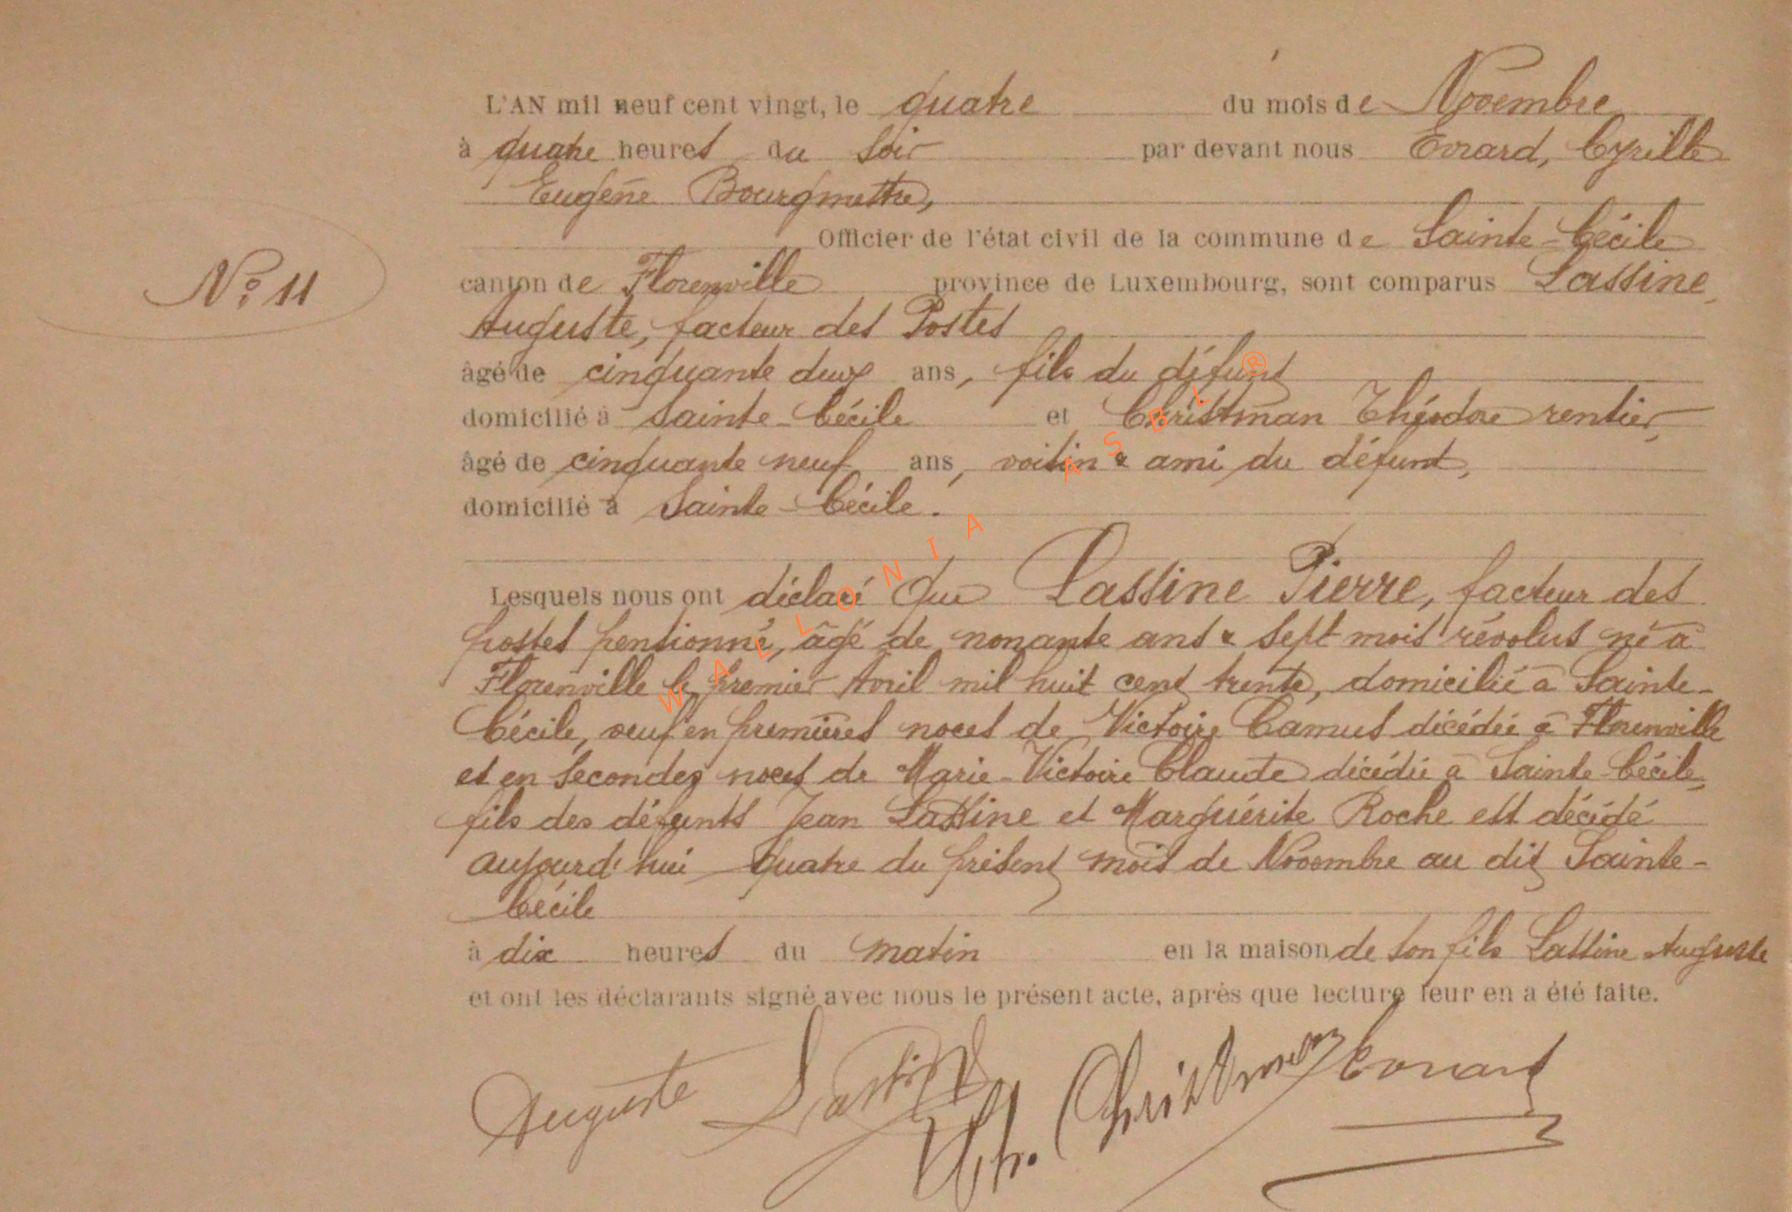 L'AN mil neuf cent vingt, le quatre du mois de Novembre
à quatre heures du soir par devant nous Evrard, Cyrille
Eugène Bourgmettre,
Officier de l'état civil de la commune de Sainte-Cécile
N° 11
canton de Florenville province de Luxembourg, sont comparus Lassine
Auguste, facteur des Postes
âgé de cinquante deux ans, fils du défunt
domicilié à Sainte-Cécile et Christman Théodore rentier,
âgé de cinquante neuf ans, voisin & ami du défunt,
domicilié à Sainte-Cécile.
Lesquels nous ont déclaré que Lassine Pierre, facteur des
postes pensionné, âgé de nonante ans & sept mois révolus né à
Florenville le premier Avril mil huit cent trente, domicilié à Sainte-
Cécile, veuf en premières noces de Victoire Camus décédée à Florenville
et en secondes noces de Marie-Victoire Claude décédée à Sainte-Cécile,
fils des défunts Jean Lassine et Marguérite Roche est décédé
aujourd'hui quatre du présent mois de Novembre au dit Sainte-
Cécile
à dix heures du matin en la maison de son fils Lassine Auguste
et ont les déclarants signé avec nous le présent acte, après que lecture leur en a été faite.
Auguste Lassine Th. Christman Evrard
WALLONIA ASBL ®